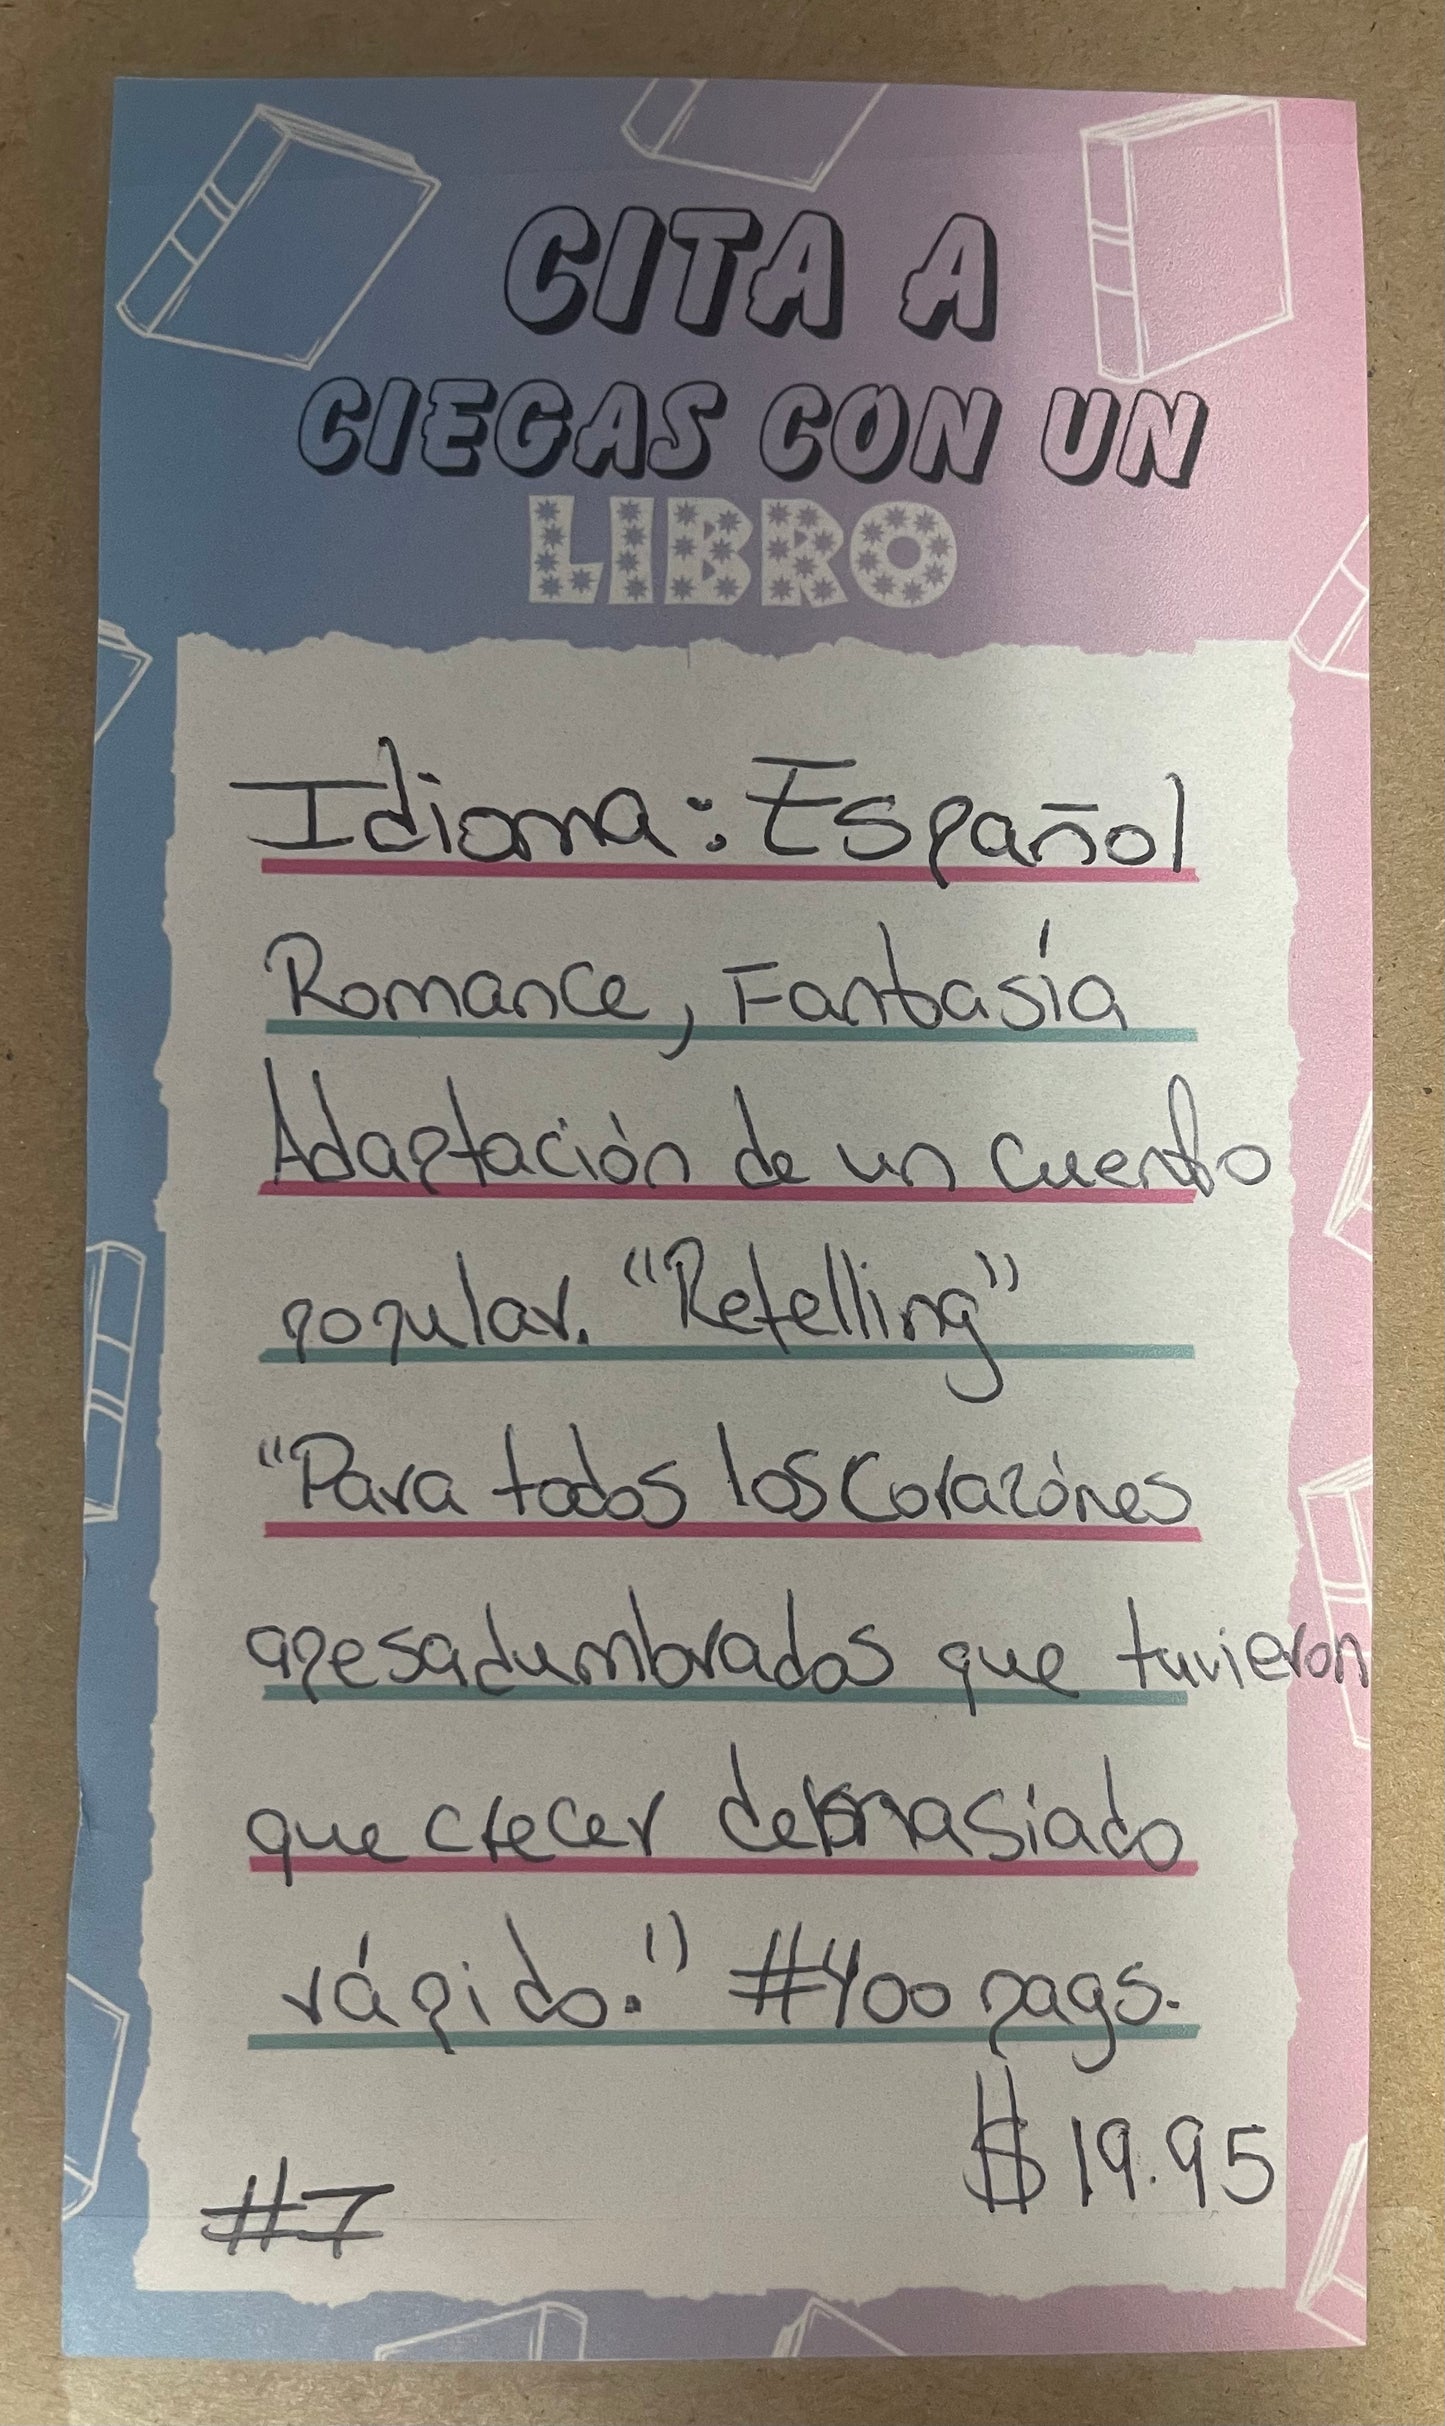 CITA A
CIEGAS CON UN
LIBRO
Idioma: Español
Romance, Fantasía
Adaptación de un cuento
popular. "Retelling"
"Para todos los corazónes
apesadumbrados que tuvieron
que crecer demasiado
rápido." #400 pags.
$19.95
#7